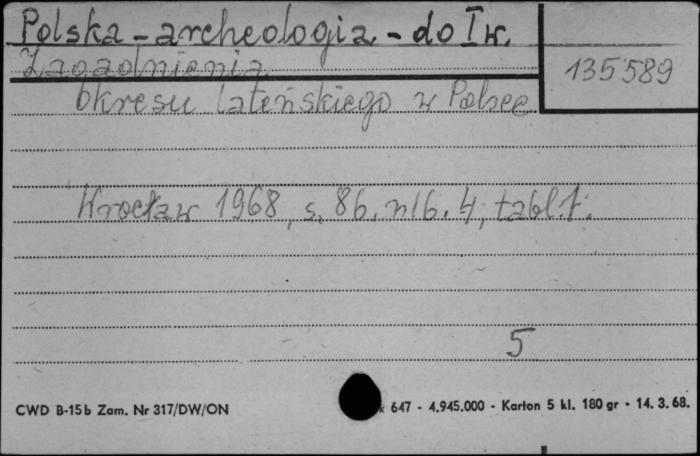 Polska - archeologia - do I w.
135589
Zagadnienia
Okresu lateńskiego w Polsce
Wrocław 1968, s. 86, nlb. 4, tabl. 1.
5
CWD B-15b Zam. Nr 317/DW/ON
647 - 4.945.000 - Karton 5 kl. 180 gr - 14. 3. 68.